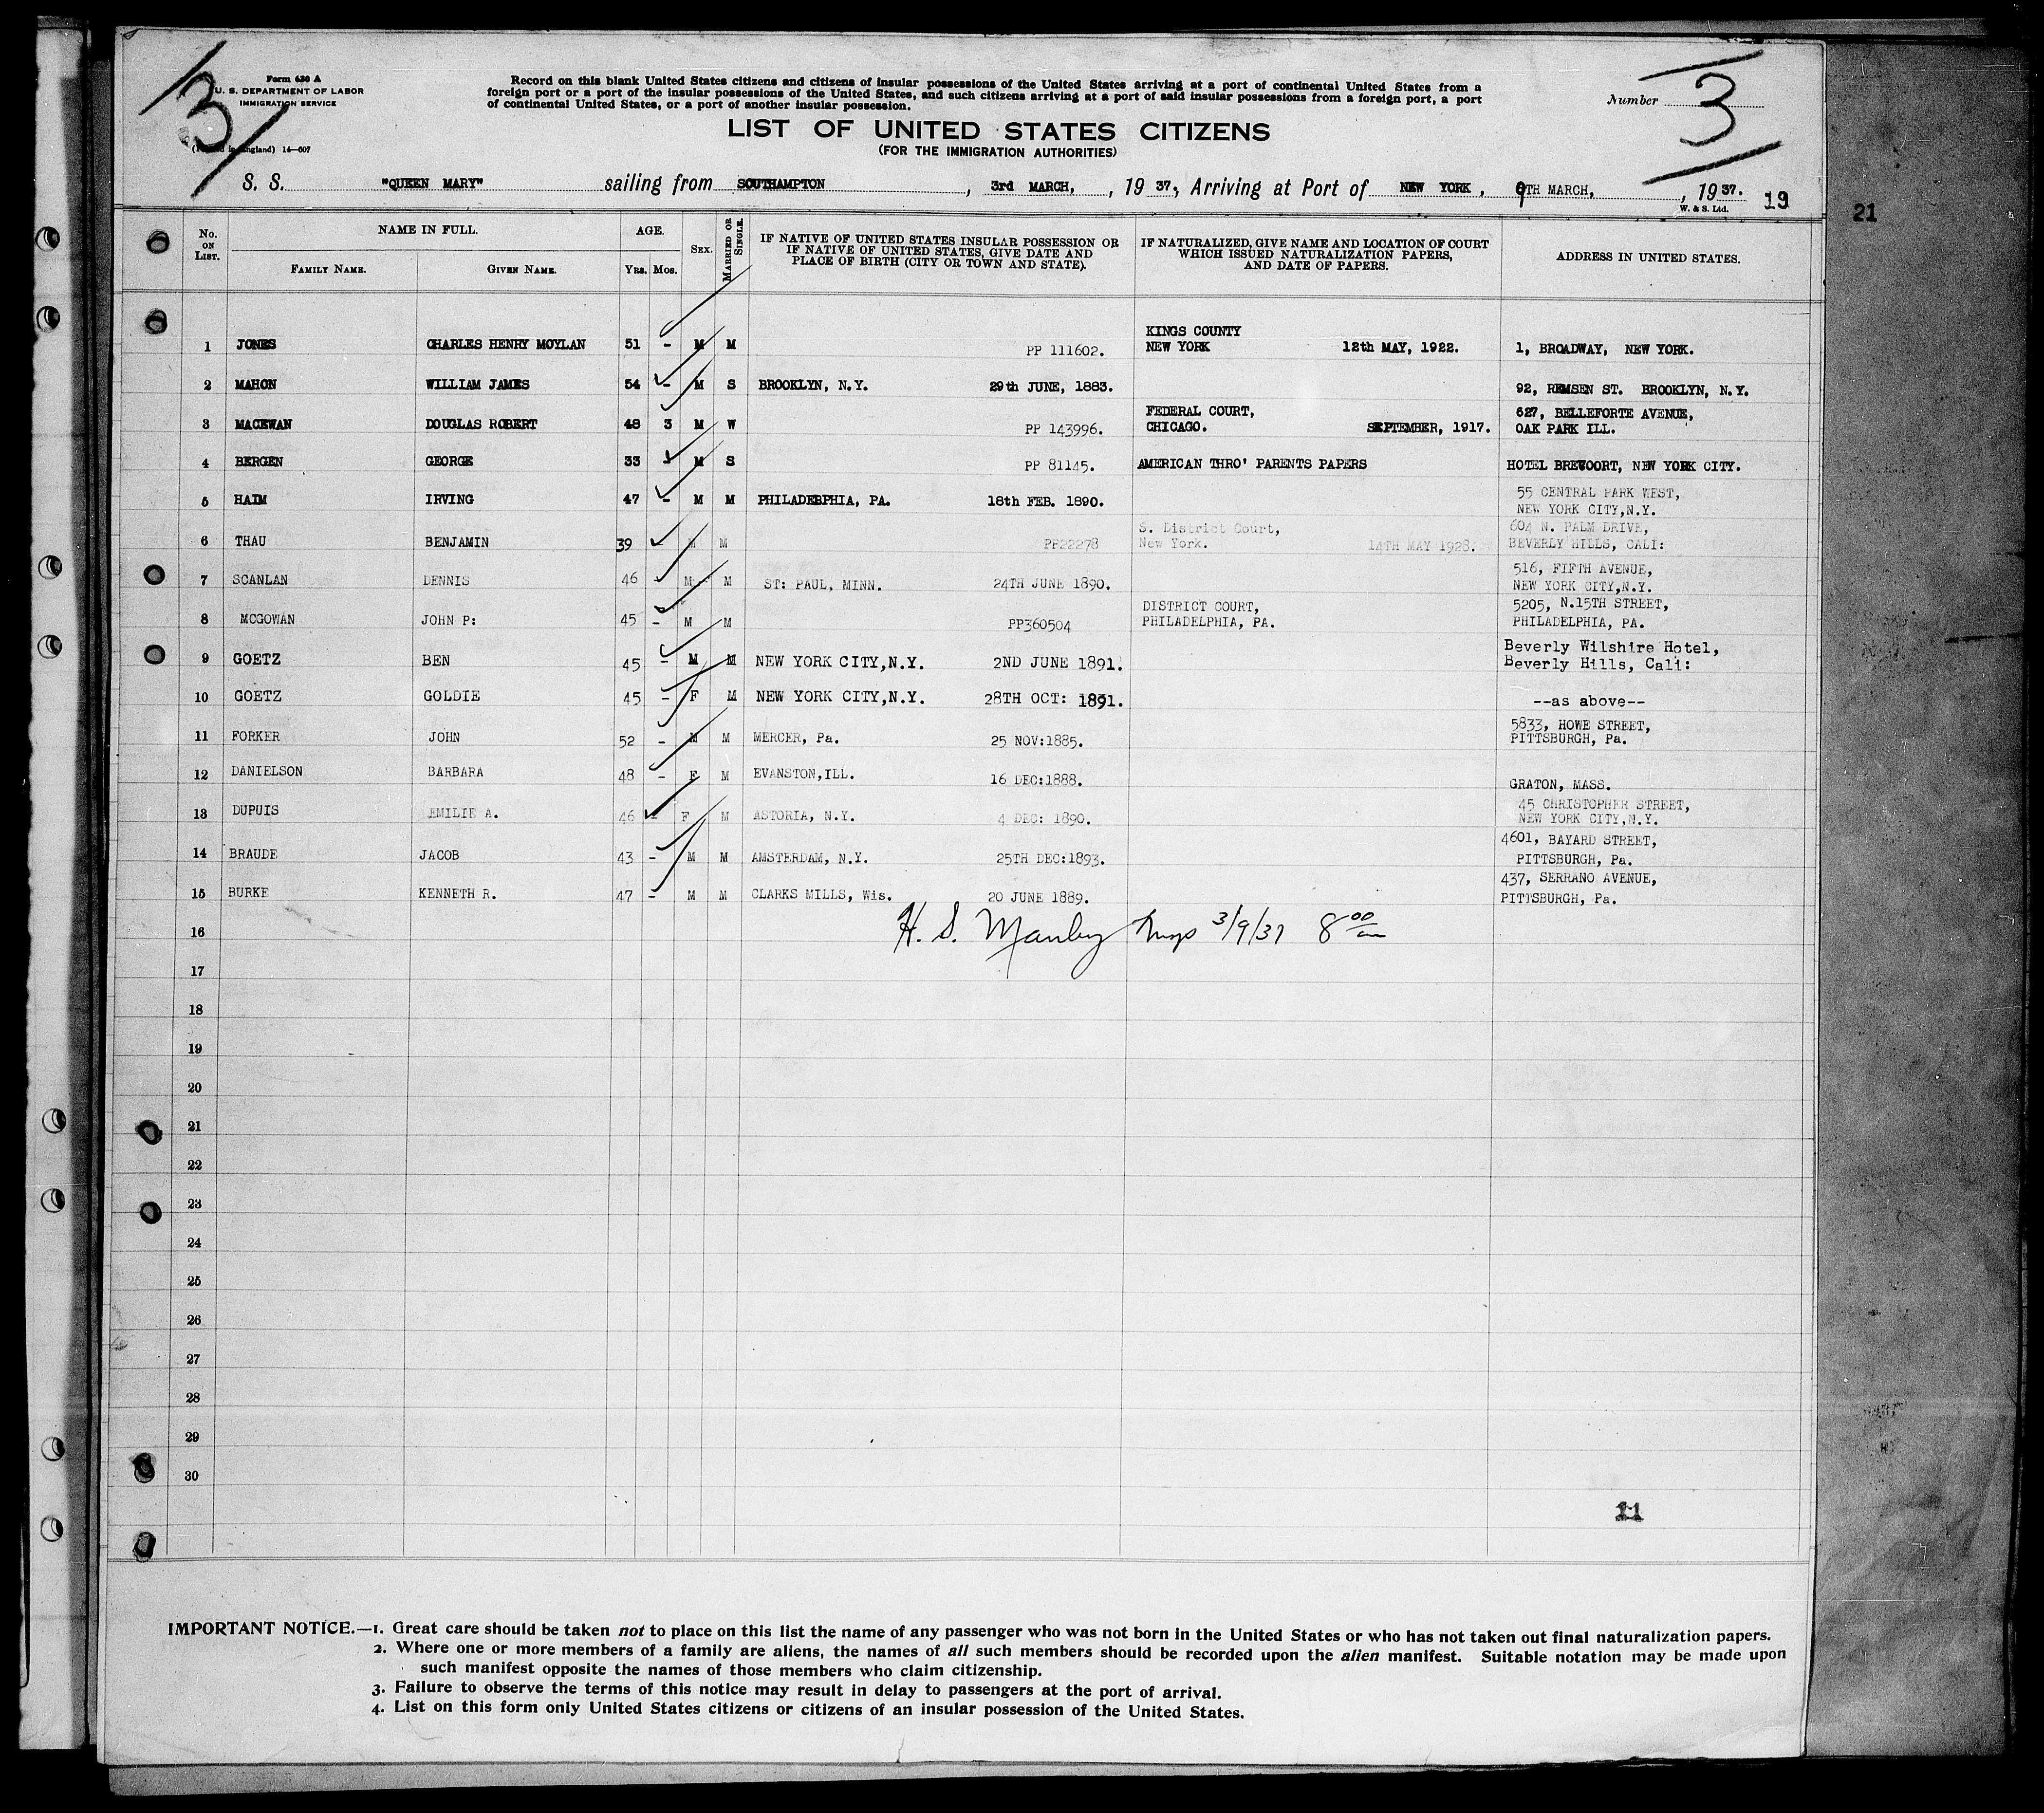 3
Form 630 A
U. S. DEPARTMENT OF LABOR
IMMIGRATION SERVICE
(Printed in England) 14—607
Record on this blank United States citizens and citizens of insular possessions of the United States arriving at a port of continental United States from a
foreign port or a port of the insular possessions of the United States, and such citizens arriving at a port of said insular possessions from a foreign port, a port
of continental United States, or a port of another insular possession.
Number 3
LIST OF UNITED STATES CITIZENS
(FOR THE IMMIGRATION AUTHORITIES)
S. S. "QUEEN MARY" sailing from SOUTHAMPTON, 3rd MARCH, 1937, Arriving at Port of NEW YORK, 9TH MARCH, 1937.
W. & S. Ltd.
19
21
No. ON LIST. NAME IN FULL. AGE. SEX. MARRIED OR SINGLE. IF NATIVE OF UNITED STATES INSULAR POSSESSION OR IF NATIVE OF UNITED STATES, GIVE DATE AND PLACE OF BIRTH (CITY OR TOWN AND STATE). IF NATURALIZED, GIVE NAME AND LOCATION OF COURT WHICH ISSUED NATURALIZATION PAPERS, AND DATE OF PAPERS. ADDRESS IN UNITED STATES.
FAMILY NAME. GIVEN NAME. YRS. MOS.
1 JONES CHARLES HENRY MOYLAN 51 - M M PP 111602. KINGS COUNTY NEW YORK 12th MAY, 1922. 1, BROADWAY, NEW YORK.
2 MAHON WILLIAM JAMES 54 - M S BROOKLYN, N.Y. 29th JUNE, 1883. 92, REMSEN ST. BROOKLYN, N.Y.
3 MACEWAN DOUGLAS ROBERT 48 3 M W PP 143996. FEDERAL COURT, CHICAGO. SEPTEMBER, 1917. 627, BELLEFORTE AVENUE, OAK PARK ILL.
4 BERGEN GEORGE 33 - M S PP 81145. AMERICAN THRO' PARENTS PAPERS HOTEL BREVOORT, NEW YORK CITY.
5 HAIM IRVING 47 - M M PHILADEBPHIA, PA. 18th FEB. 1890. 55 CENTRAL PARK WEST, NEW YORK CITY,N.Y.
6 THAU BENJAMIN 39 - M M PP22278 S. District Court, New York. 14TH MAY 1928. 604 N. PALM DRIVE, BEVERLY HILLS, CALI:
7 SCANLAN DENNIS 46 - M M ST: PAUL, MINN. 24TH JUNE 1890. 516, FIFTH AVENUE, NEW YORK CITY,N.Y.
8 MCGOWAN JOHN P: 45 - M M PP360504 DISTRICT COURT, PHILADELPHIA, PA. 5205, N.15TH STREET, PHILADELPHIA, PA.
9 GOETZ BEN 45 - M M NEW YORK CITY,N.Y. 2ND JUNE 1891. Beverly Wilshire Hotel, Beverly Hills, Cali:
10 GOETZ GOLDIE 45 - F M NEW YORK CITY,N.Y. 28TH OCT: 1891. --as above--
11 FORKER JOHN 52 - M M MERCER, Pa. 25 NOV:1885. 5833, HOWE STREET, PITTSBURGH, Pa.
12 DANIELSON BARBARA 48 - F M EVANSTON,ILL. 16 DEC:1888. GRATON, MASS.
13 DUPUIS EMILIE A. 46 - F M ASTORIA, N.Y. 4 DEC: 1890. 45 CHRISTOPHER STREET, NEW YORK CITY,N.Y.
14 BRAUDE JACOB 43 - M M AMSTERDAM, N.Y. 25TH DEC:1893. 4601, BAYARD STREET, PITTSBURGH, Pa.
15 BURKE KENNETH R. 47 - M M CLARKS MILLS, Wis. 20 JUNE 1889. 437, SERRANO AVENUE, PITTSBURGH, Pa.
16 H. S. Manley Insp 3/9/37 8 00
17
18
19
20
21
22
23
24
25
26
27
28
29
30
11
IMPORTANT NOTICE.—1. Great care should be taken not to place on this list the name of any passenger who was not born in the United States or who has not taken out final naturalization papers.
2. Where one or more members of a family are aliens, the names of all such members should be recorded upon the alien manifest. Suitable notation may be made upon
such manifest opposite the names of those members who claim citizenship.
3. Failure to observe the terms of this notice may result in delay to passengers at the port of arrival.
4. List on this form only United States citizens or citizens of an insular possession of the United States.